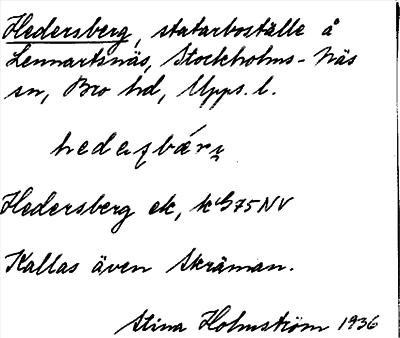 Hedersberg, statarboställe å
Lennartsnäs, Stockholms-Näs
sn, Bro hd, Upps. l.
Hedersberg ek,
Kallas även Skräman.
Stina Holmström 1936